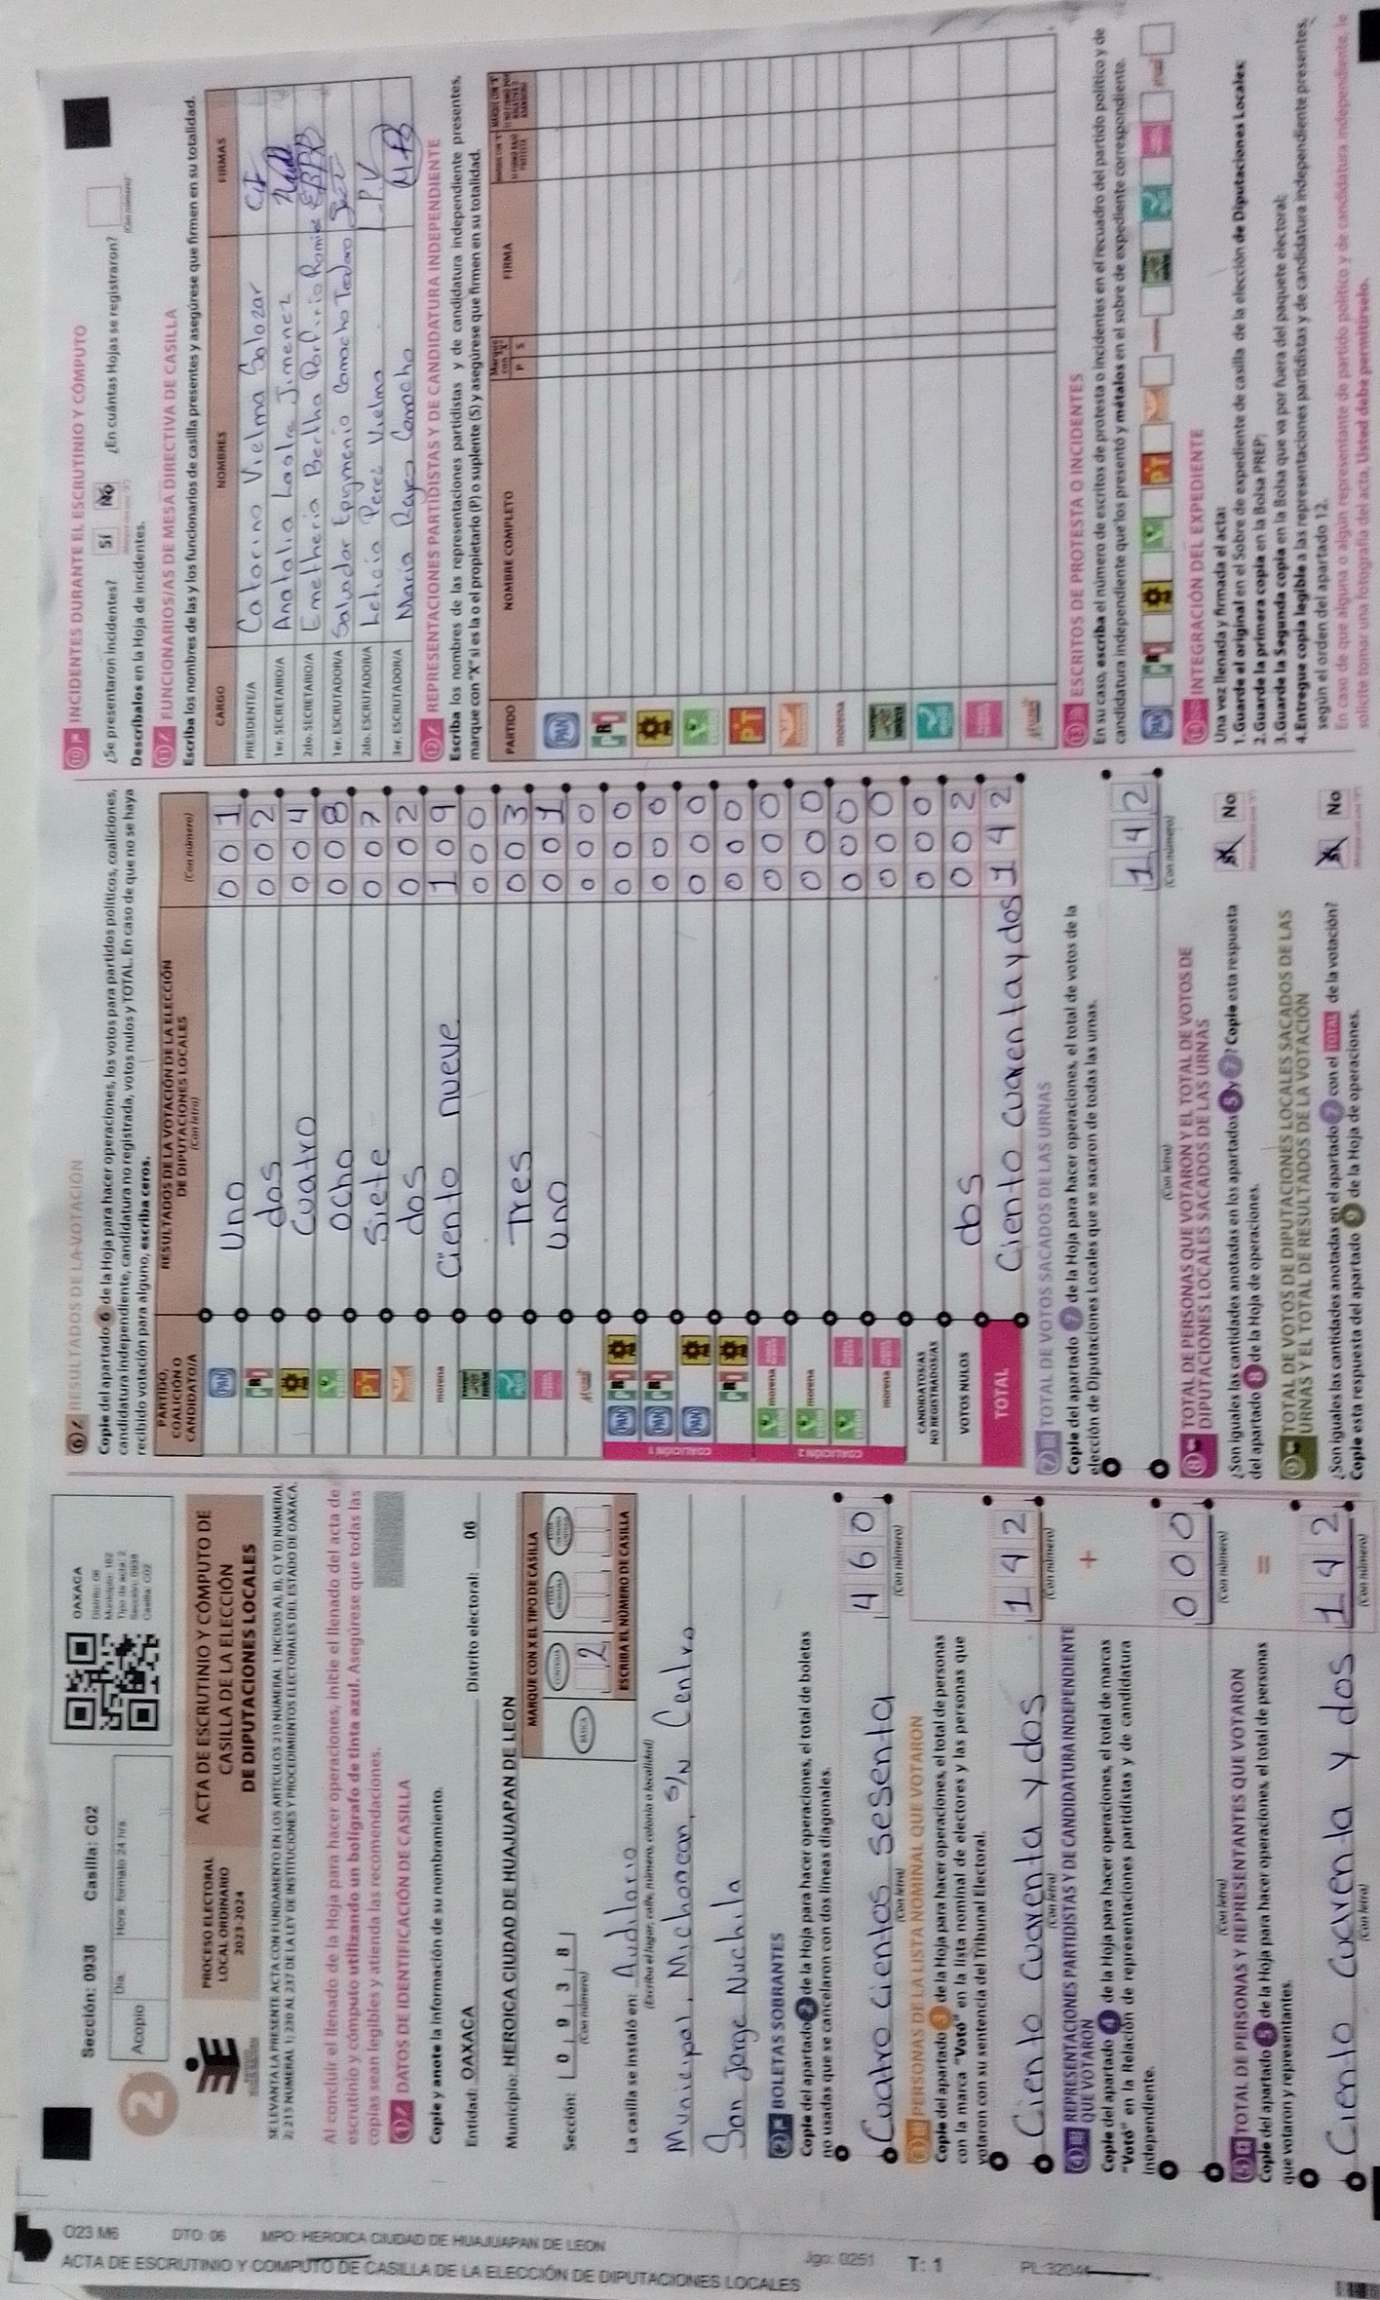 O23 M6
DTO: 06
MPO: HEROICA CIUDAD DE HUAJUAPAN DE LEON
ACTA DE ESCRUTINIO Y CÓMPUTO DE CASILLA DE LA ELECCIÓN DE DIPUTACIONES LOCALES
Jgo: 0251
T: 1
Sección: 0938 Casilla: C02
2
Acopio
Día:
Hora: formato 24 hrs
OAXACA
Distrito: 06
Municipio: 102
Tipo de acta: 2
Sección: 0938
Casilla: C02
PROCESO ELECTORAL
LOCAL ORDINARIO
2023-2024
ACTA DE ESCRUTINIO Y CÓMPUTO DE
CASILLA DE LA ELECCIÓN
DE DIPUTACIONES LOCALES
SE LEVANTA LA PRESENTE ACTA CON FUNDAMENTO EN LOS ARTÍCULOS 210 NUMERAL 1 INCISOS A), B), C) Y D) NUMERAL
2; 215 NUMERAL 1; 230 AL 237 DE LA LEY DE INSTITUCIONES Y PROCEDIMIENTOS ELECTORALES DEL ESTADO DE OAXACA.
Al concluir el llenado de la Hoja para hacer operaciones, inicie el llenado del acta de
escrutinio y cómputo utilizando un bolígrafo de tinta azul. Asegúrese que todas las
copias sean legibles y atienda las recomendaciones.
1 DATOS DE IDENTIFICACIÓN DE CASILLA
Copie y anote la información de su nombramiento.
Entidad: OAXACA Distrito electoral: 06
Municipio: HEROICA CIUDAD DE HUAJUAPAN DE LEON
Sección: 0 9 3 8
(Con número)
MARQUE CON X EL TIPO DE CASILLA
BÁSICA
CONTIGUA
2
ESCRIBA EL NÚMERO DE CASILLA
La casilla se instaló en: Auditorio
(Escriba el lugar, calle, número, colonia o localidad)
Municipal, Michoacan, S/N Centro
San Jorge Nuchita
2 BOLETAS SOBRANTES
Copie del apartado 2 de la Hoja para hacer operaciones, el total de boletas
no usadas que se cancelaron con dos líneas diagonales.
Cuatro cientos sesenta 4 6 0
(Con letra) (Con número)
3 PERSONAS DE LA LISTA NOMINAL QUE VOTARON
Copie del apartado 3 de la Hoja para hacer operaciones, el total de personas
con la marca "Votó" en la lista nominal de electores y las personas que
votaron con su sentencia del Tribunal Electoral.
Ciento cuarenta y dos 1 4 2
(Con letra) (Con número)
+
4 REPRESENTACIONES PARTIDISTAS Y DE CANDIDATURA INDEPENDIENTE
QUE VOTARON
Copie del apartado 4 de la Hoja para hacer operaciones, el total de marcas
"Votó" en la Relación de representaciones partidistas y de candidatura
independiente.
0 0 0
(Con letra) (Con número)
=
5 TOTAL DE PERSONAS Y REPRESENTANTES QUE VOTARON
Copie del apartado 5 de la Hoja para hacer operaciones, el total de personas
que votaron y representantes.
Ciento cuarenta y dos 1 4 2
(Con letra) (Con número)
6 RESULTADOS DE LA VOTACIÓN
Copie del apartado 6 de la Hoja para hacer operaciones, los votos para partidos políticos, coaliciones,
candidatura independiente, candidatura no registrada, votos nulos y TOTAL. En caso de que no se haya
recibido votación para alguno, escriba ceros.
PARTIDO,
COALICIÓN O
CANDIDATO/A
RESULTADOS DE LA VOTACIÓN DE LA ELECCIÓN
DE DIPUTACIONES LOCALES
(Con letra) (Con número)
PAN Uno 0 0 1
PRI dos 0 0 2
PRD cuatro 0 0 4
VERDE ocho 0 0 8
PT Siete 0 0 7
dos 0 0 2
morena Ciento nueve 1 0 9
0 0 0
Tres 0 0 3
uno 0 0 1
0 0 0
COALICIÓN 1
PAN PRI PRD 0 0 0
PAN PRI 0 0 0
PAN PRD 0 0 0
PRI PRD 0 0 0
COALICIÓN 2
VERDE morena 0 0 0
VERDE morena 0 0 0
VERDE 0 0 0
morena 0 0 0
CANDIDATOS/AS
NO REGISTRADOS/AS 0 0 0
VOTOS NULOS dos 0 0 2
TOTAL Ciento cuarenta y dos 1 4 2
7 TOTAL DE VOTOS SACADOS DE LAS URNAS
Copie del apartado 7 de la Hoja para hacer operaciones, el total de votos de la
elección de Diputaciones Locales que se sacaron de todas las urnas.
1 4 2
(Con letra) (Con número)
8 TOTAL DE PERSONAS QUE VOTARON Y EL TOTAL DE VOTOS DE
DIPUTACIONES LOCALES SACADOS DE LAS URNAS
¿Son iguales las cantidades anotadas en los apartados 5 y 7? Copie esta respuesta
del apartado 8 de la Hoja de operaciones.
Sí No
9 TOTAL DE VOTOS DE DIPUTACIONES LOCALES SACADOS DE LAS
URNAS Y EL TOTAL DE RESULTADOS DE LA VOTACIÓN
¿Son iguales las cantidades anotadas en el apartado 7 con el TOTAL de la votación?
Copie esta respuesta del apartado 9 de la Hoja de operaciones.
Sí No
10 INCIDENTES DURANTE EL ESCRUTINIO Y CÓMPUTO
¿Se presentaron incidentes? Sí No ¿En cuántas Hojas se registraron?
(Con número)
Descríbalos en la Hoja de incidentes.
11 FUNCIONARIOS/AS DE MESA DIRECTIVA DE CASILLA
Escriba los nombres de las y los funcionarios de casilla presentes y asegúrese que firmen en su totalidad.
CARGO NOMBRES FIRMAS
PRESIDENTE/A Catarino Vielma Salazar
1er. SECRETARIO/A Anatalia Laolra Jimenez
2do. SECRETARIO/A Emetheria Bertha Porfirio Ramirez EBPR
1er. ESCRUTADOR/A Salvador Epigmenio Camacho Teodoro
2do. ESCRUTADOR/A Leticia Perez Vielma L.P.V
3er. ESCRUTADOR/A Maria Reyes Camacho
12 REPRESENTACIONES PARTIDISTAS Y DE CANDIDATURA INDEPENDIENTE
Escriba los nombres de las representaciones partidistas y de candidatura independiente presentes,
marque con "X" si es la o el propietario (P) o suplente (S) y asegúrese que firmen en su totalidad.
PARTIDO NOMBRE COMPLETO Marque con "X" P S FIRMA
PAN
PRI
PRD
VERDE
PT
morena
13 ESCRITOS DE PROTESTA O INCIDENTES
En su caso, escriba el número de escritos de protesta o incidentes en el recuadro del partido político y de
candidatura independiente que los presentó y métalos en el sobre de expediente correspondiente.
PAN PRI PRD VERDE PT
14 INTEGRACIÓN DEL EXPEDIENTE
Una vez llenada y firmada el acta:
1. Guarde el original en el Sobre de expediente de casilla de la elección de Diputaciones Locales;
2. Guarde la primera copia en la Bolsa PREP;
3. Guarde la Segunda copia en la Bolsa que va por fuera del paquete electoral;
4. Entregue copia legible a las representaciones partidistas y de candidatura independiente presentes,
según el orden del apartado 12.
En caso de que alguna o algún representante de partido político y de candidatura independiente, le
solicite tomar una fotografía del acta, Usted debe permitírselo.